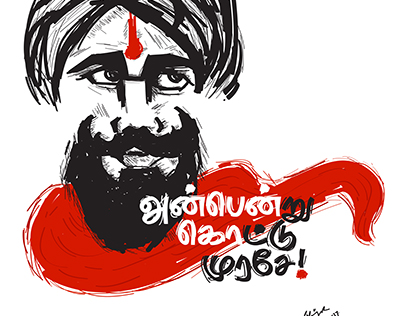 அன்பென்று
கொட்டு
முரசே!